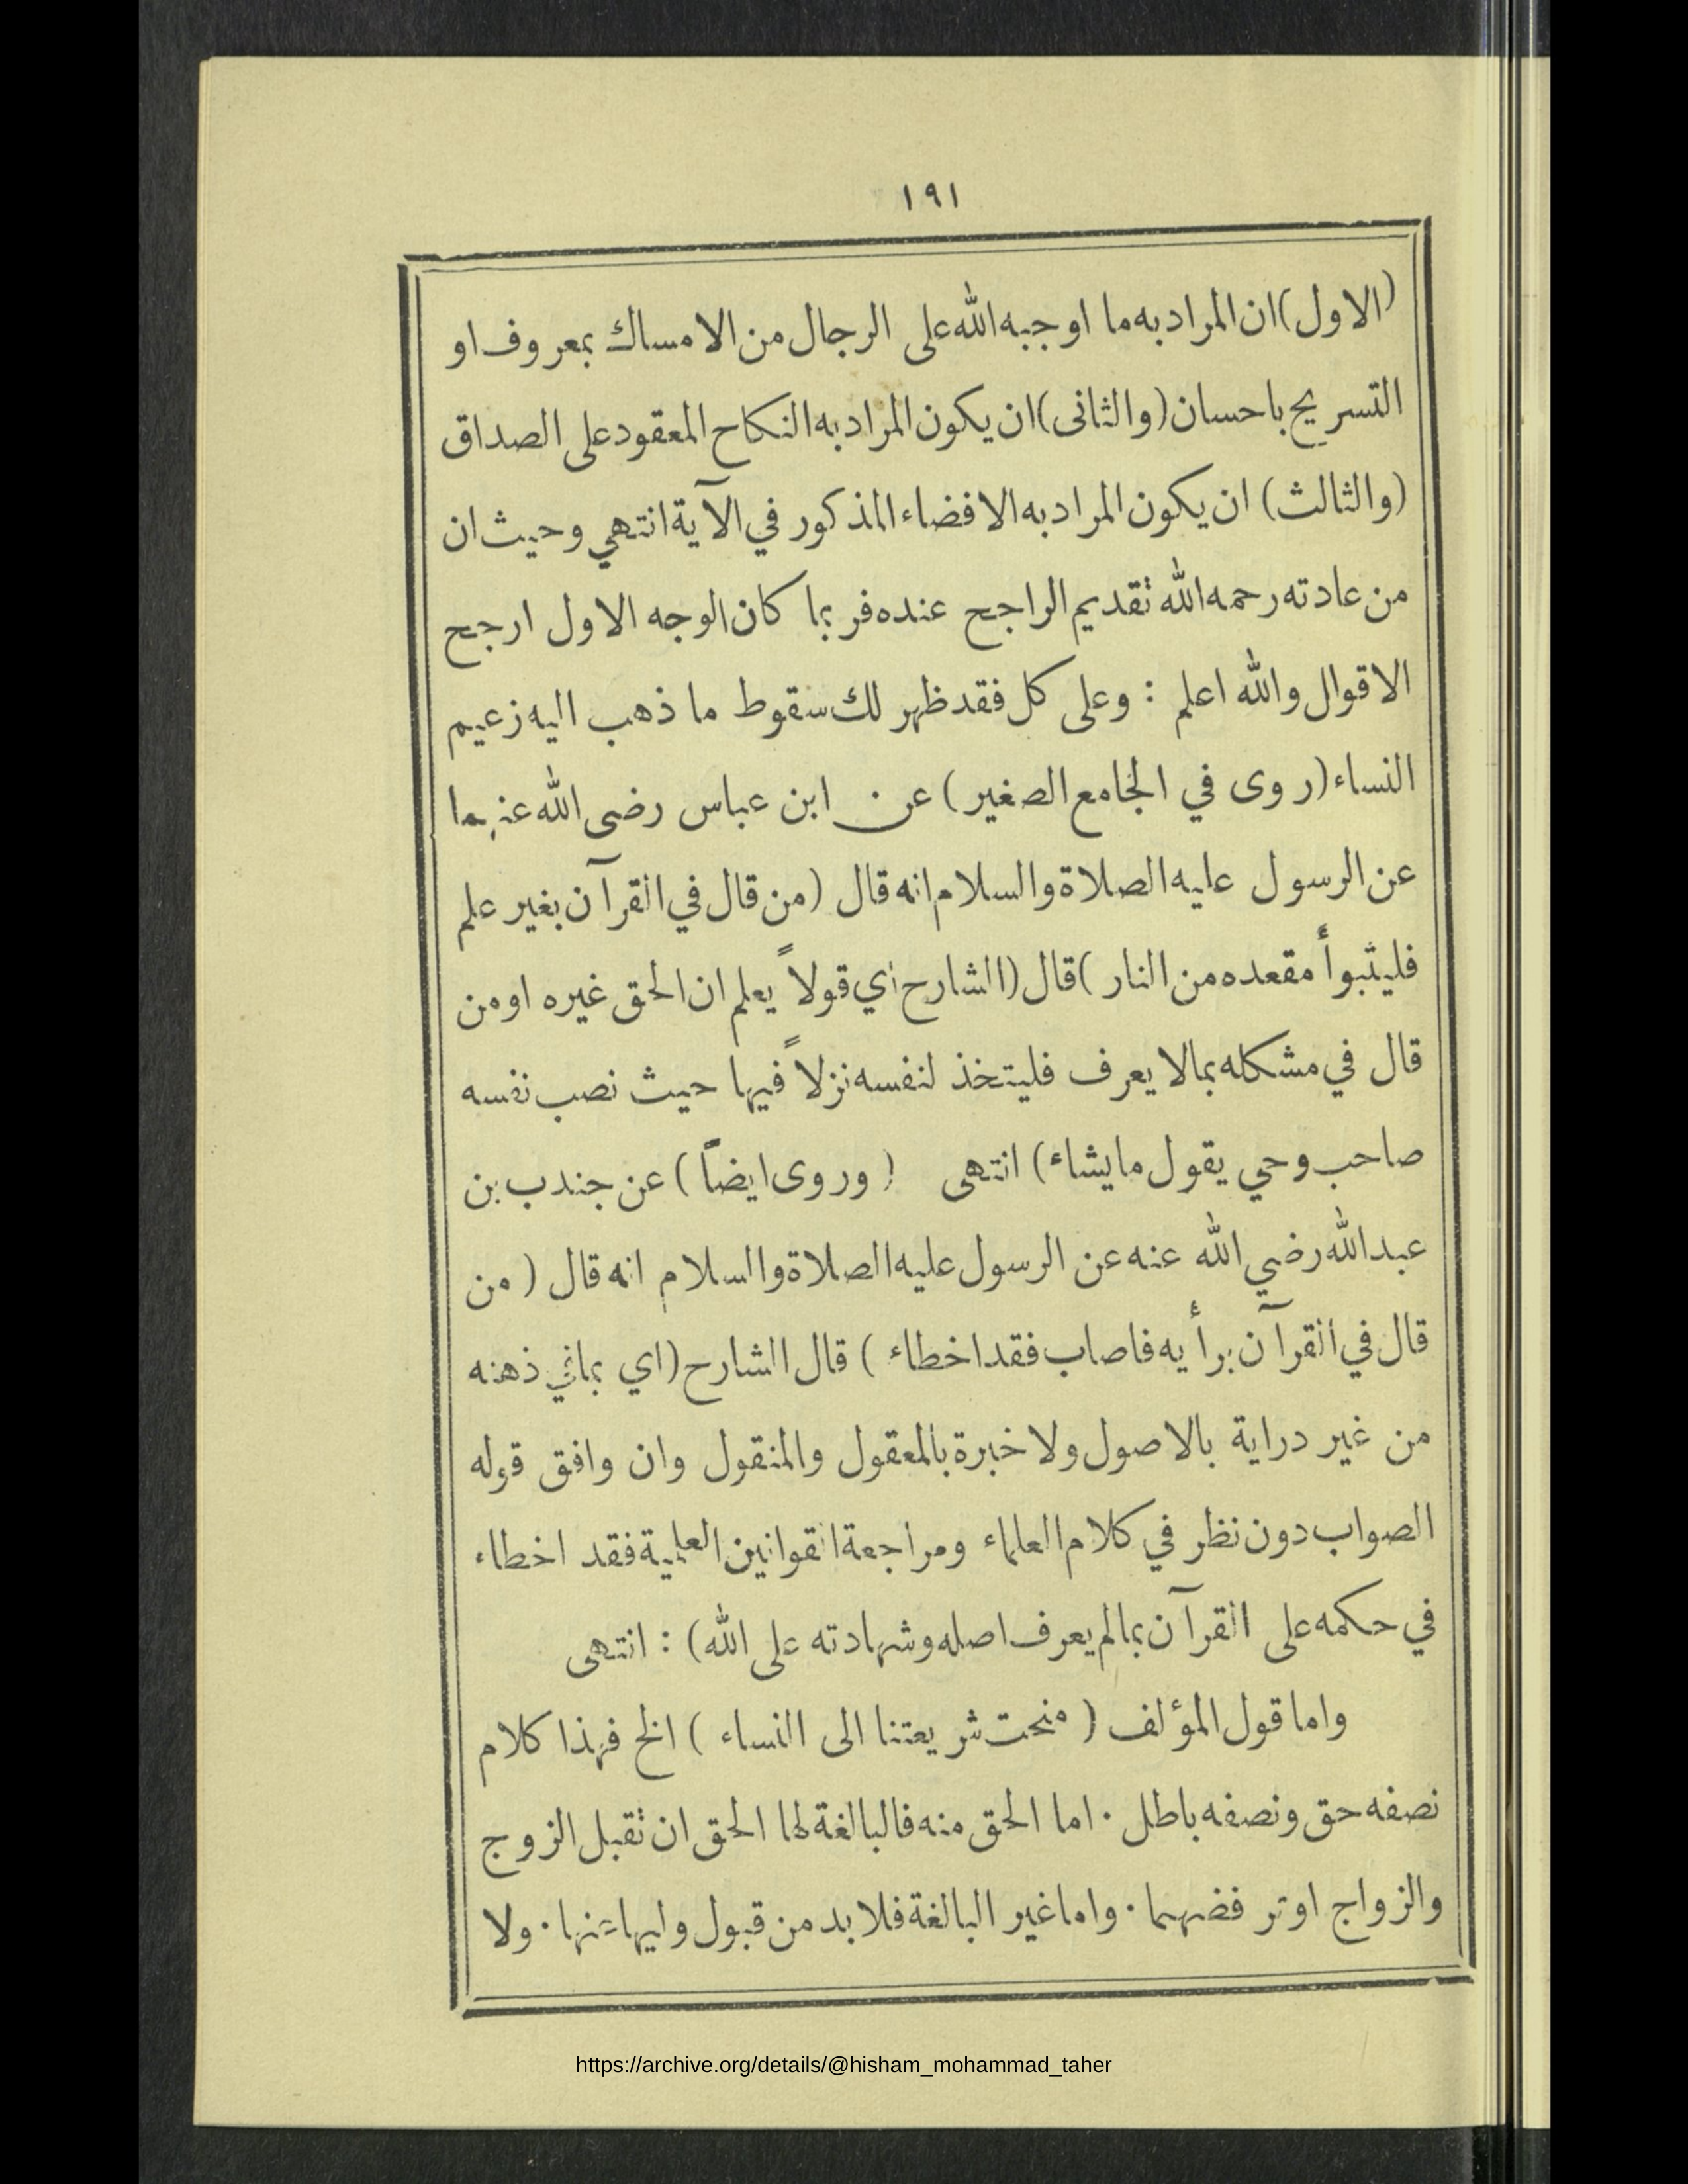 ١٩١
(الاول) ان المراد به ما اوجبه الله على الرجال من الامساك بمعروف او
التسريح باحسان (والثانى) ان يكون المراد به النكاح المعقود على الصداق
(والثالث) ان يكون المراد به الافضاء المذكور في الآية انتهي وحيث ان
من عادته رحمه الله تقديم الراجح عنده فربما كان الوجه الاول ارجح
الاقوال والله اعلم : وعلى كل فقد ظهر لك سقوط ما ذهب اليه زعيم
النساء (روى في الجامع الصغير) عن ابن عباس رضى الله عنهما
عن الرسول عليه الصلاة والسلام انه قال (من قال في القرآن بغير علم
فليتبوأ مقعده من النار) قال (الشارح اي قولاً يعلم ان الحق غيره او من
قال في مشكله بما لا يعرف فليتخذ لنفسه نزلاً فيها حيث نصب نفسه
صاحب وحي يقول ما يشاء) انتهى (وروى ايضاً) عن جندب بن
عبد الله رضي الله عنه عن الرسول عليه الصلاة والسلام انه قال (من
قال في القرآن برأيه فاصاب فقد اخطاء) قال الشارح (اي بما في ذهنه
من غير دراية بالاصول ولا خبرة بالمعقول والمنقول وان وافق قوله
الصواب دون نظر في كلام العلماء ومراجعة القوانين العلمية فقد اخطاء
في حكمه على القرآن بما لم يعرف اصله وشهادته على الله) : انتهى
واما قول المؤلف (منحت شريعتنا الى النساء) الخ فهذا كلام
نصفه حق ونصفه باطل . اما الحق منه فالبالغة لها الحق ان تقبل الزوج
والزواج او ترفضهما . واما غير البالغة فلا بد من قبول وليها عنها . ولا
https://archive.org/details/@hisham_mohammad_taher